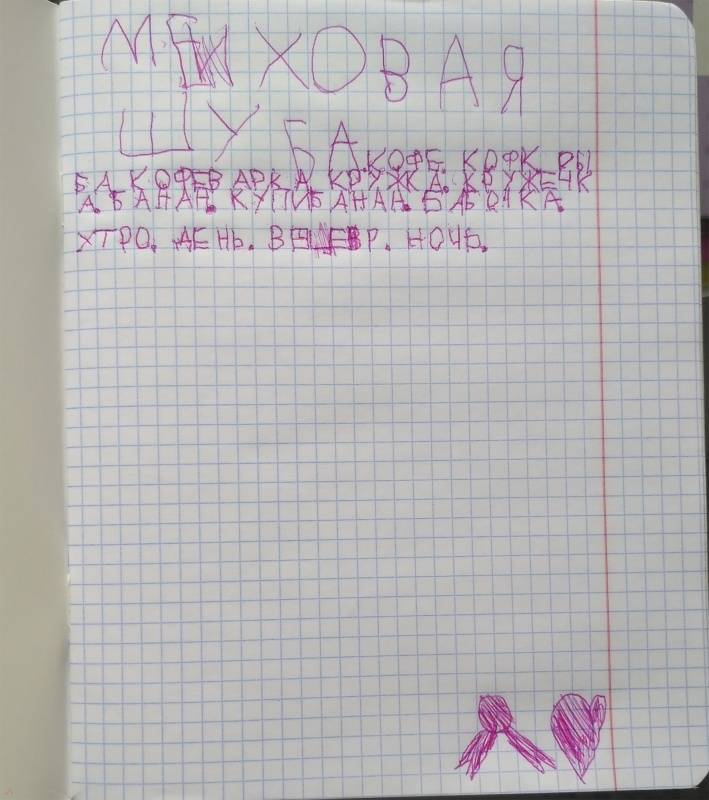 МЕХОВАЯ
ШУБА
КОФЕ. КОФК. РЫ
БА. КОФЕВАРКА. КРУЖКА. КРУЖЕЧК
А. БАНАН. КУПИБАНАН. БАБОЧКА.
УТРО. ДЕНЬ. ВЕЧЕР. НОЧЬ.